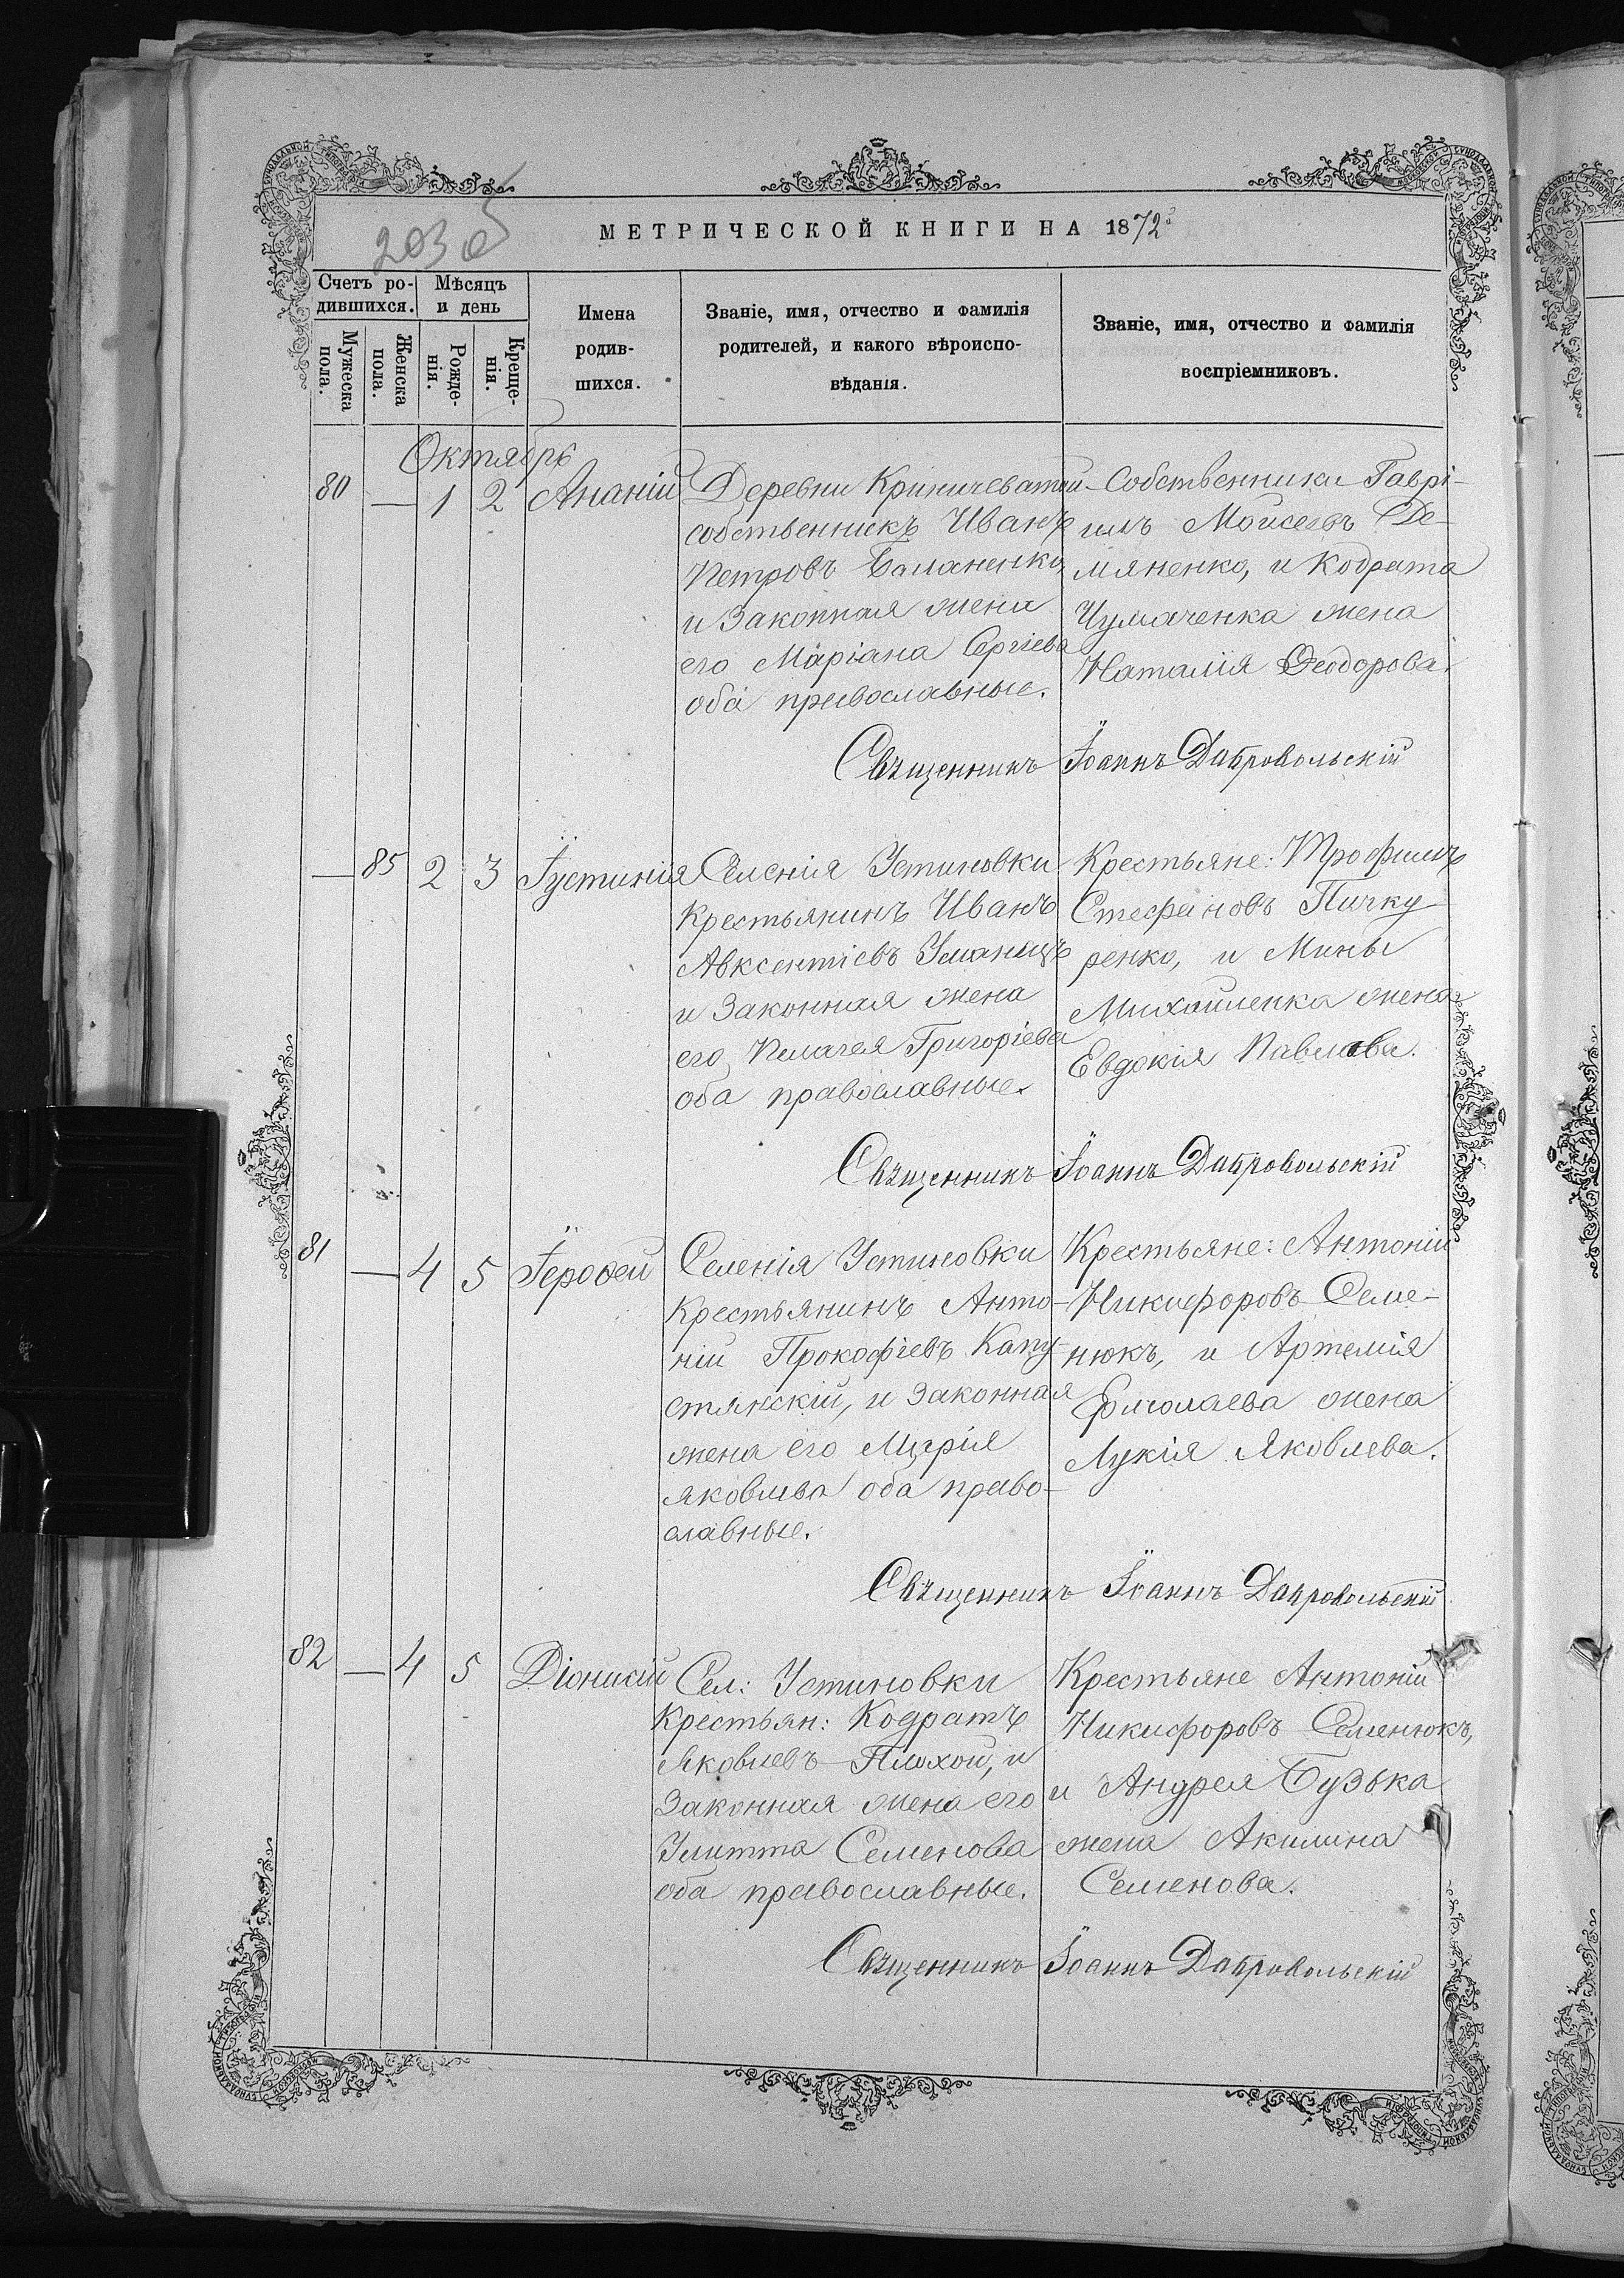 203 об
МЕТРИЧЕСКОЙ КНИГИ НА 1872
Счетъ родившихся.
Мѣсяцъ и день
Мужеска пола.
Женска пола.
Рожденія.
Крещенія.
Имена родившихся.
Званіе, имя, отчество и фамилія
родителей, и какого вѣроиспо-
вѣданія.
Званіе, имя, отчество и фамилія
воспріемниковъ.
Октябрь
80 — 1 2 Ананій
Деревни Криничеватой
собственникъ Иванъ
Петровъ Баланенко
и Законная жена
его Маріана Сергіева
оба православные.
Собственники Гаврі-
илъ Моисеевъ Де-
мяненко, и Кодрата
Чумаченка жена
Наталія Ѳеодорова.
Священникъ Іоаннъ Добровольскій
— 85 2 3 Іустинія
Селенія Устиновки
Крестьянинъ Иванъ
Авксентіевъ Уманецъ
и Законная жена
его Пелагея Григоріева
оба православные.
Крестьяне: Трофимъ
Стефановъ Пичку-
ренко, и Мины
Михайленка жена
Евдокія Павлова.
Священникъ Іоаннъ Добровольскій
81 — 4 5 Іероѳей
Селенія Устиновки
Крестьянинъ Анто-
ній Прокофіевъ Капу-
стянскій, и Законная
жена его Марія
Яковлева оба право-
славные.
Крестьяне: Антоній
Никифоровъ Семе-
нюкъ, и Артемія
Ермолаева жена
Лукія Яковлева.
Священникъ Іоаннъ Добровольскій
82 — 4 5 Діонисій
Сел: Устиновки
Крестьян: Кодратъ
Яковлевъ Плохой, и
Законная жена его
Улитта Семенова
оба православные.
Крестьяне Антоній
Никифоровъ Семенюкъ,
и Андрея Бузька
жена Акилина
Семенова.
Священникъ Іоаннъ Добровольскій